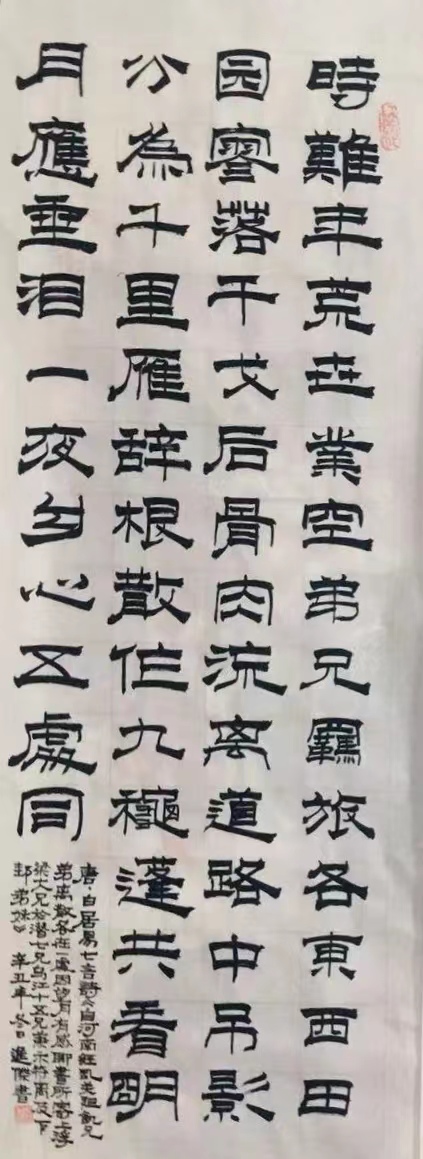 時難年荒世業空弟兄羈旅各東西田
园寥落干戈后骨肉流离道路中吊影
分為千里雁辞根散作九穐蓬共看明
月應垂泪一夜乡心五處同
唐白居易七言詩《自河南经乱关阻飢兄
弟离散各在一處因望月有感聊書所懷上浮
梁大兄於潜七兄乌江十五兄兼示符离及下
邽弟妹》辛丑年冬日進傑書